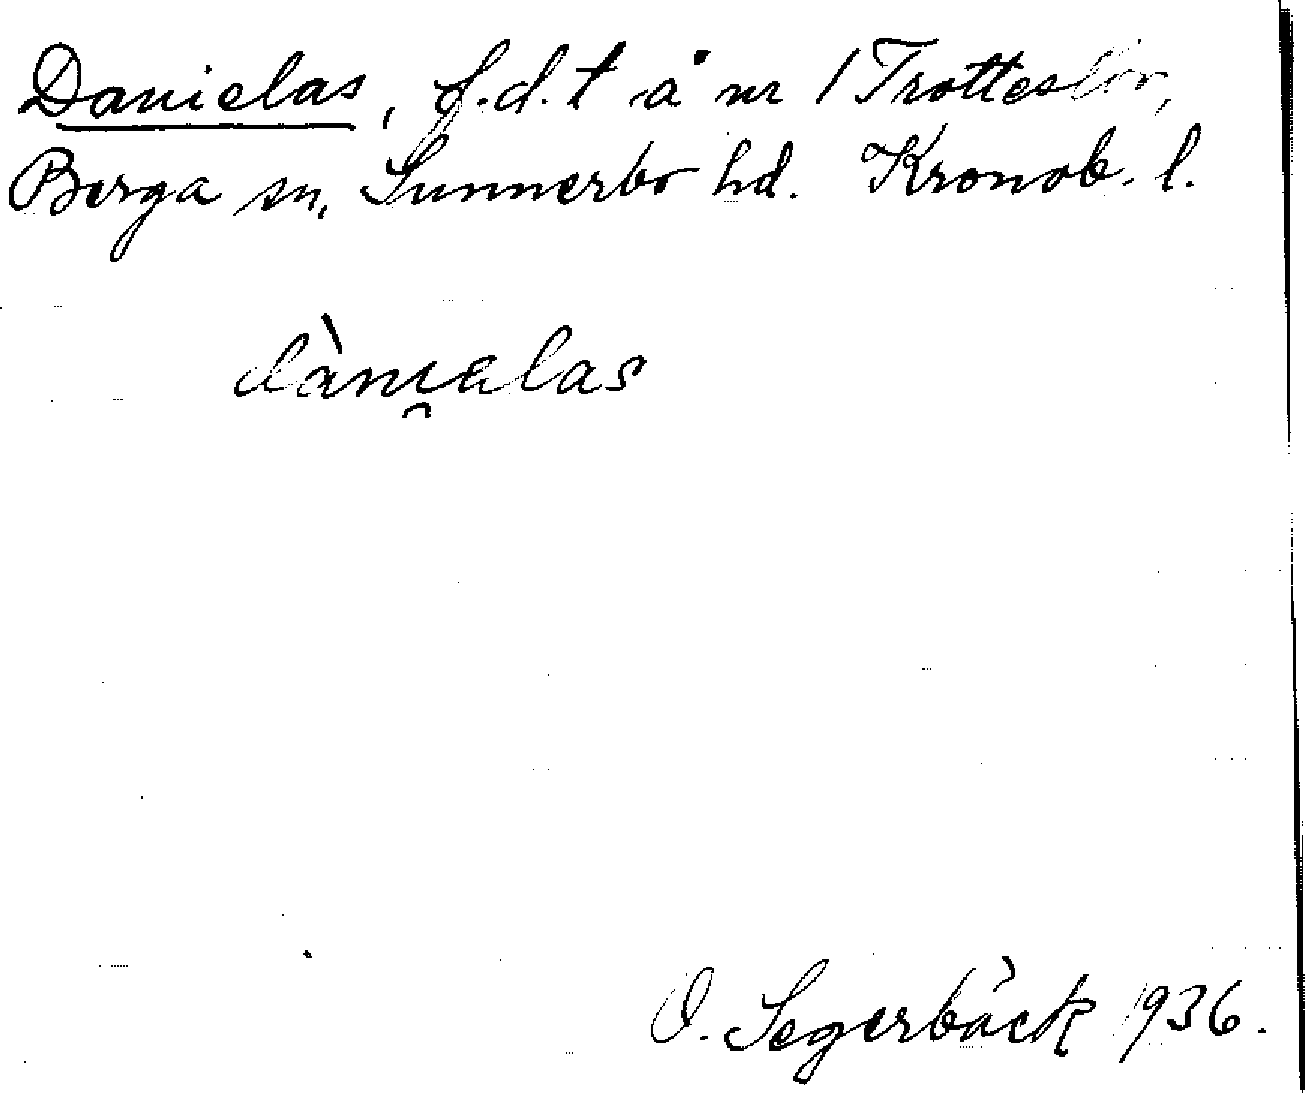 Danielas, f.d.t å nr 1 Trotteslöv,
Berga sn, Sunnerbo hd. Kronob. l.
dàni̯alas
O. Segerbäck 1936.